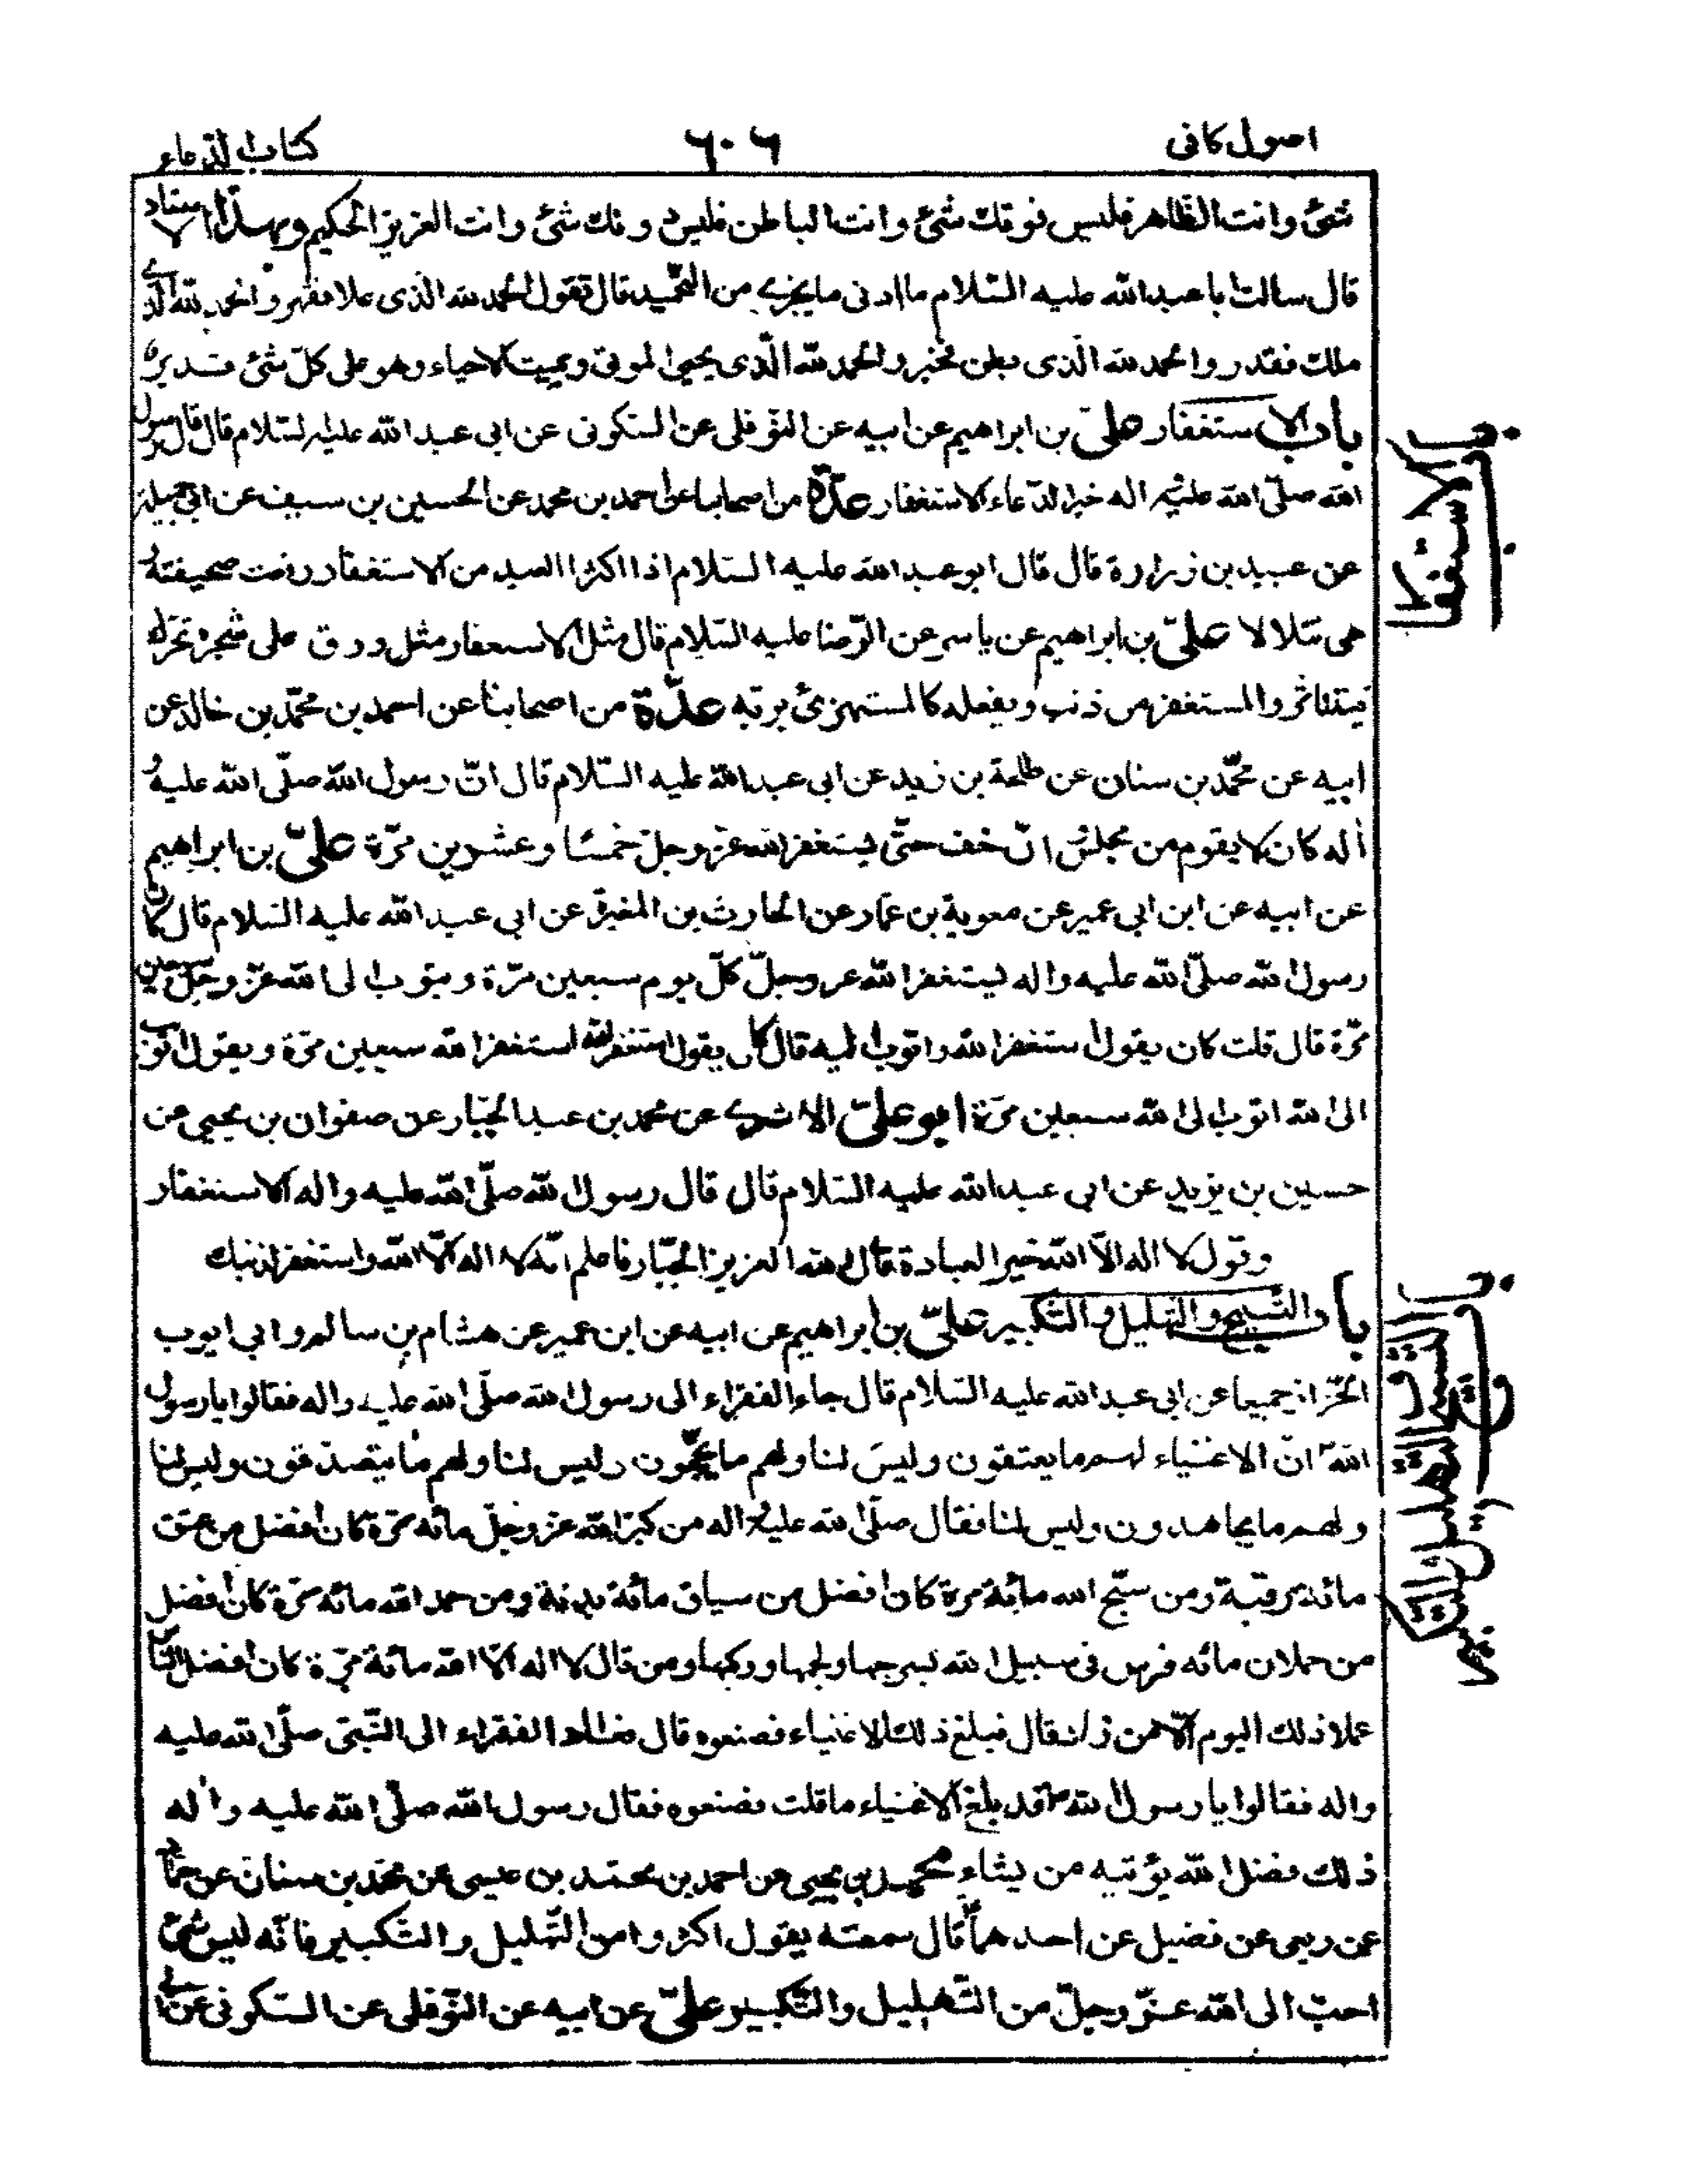 اصول كافى
٦٠٦
كتاب الدعاء
شئ وانت الظاهر فليس فوقك شئ وانت الباطن فليس دونك شئ وانت العزيز الحكيم وبهذا الاسناد
قال سالت ابا عبد الله عليه السّلام ما ادنى ما يجزى من التّحميد قال تقول الحمد لله الذى علا فقهر والحمد لله الذى
ملك فقدر والحمد لله الّذى بطن فخبر والحمد لله الّذى يحيى الموتى ويميت الاحياء وهو على كلّ شئ قدير
باب الاستغفار علىّ بن ابراهيم عن ابيه عن النّوفلى عن السّكونى عن ابى عبد الله عليه السّلام قال قال رسول
الله صلّى الله عليه واله خير الدّعاء الاستغفار عدّة من اصحابنا عن احمد بن محمد عن الحسين بن سيف عن ابى جميلة
عن عبيد بن زرارة قال قال ابو عبد الله عليه السّلام اذا اكثر العبد من الاستغفار رفعت صحيفته و
هى تتلالا علىّ بن ابراهيم عن ياسر عن الرّضا عليه السّلام قال مثل الاستغفار مثل ورق على شجرة تحرّك
فيتناثر والمستغفر من ذنب ويفعله كالمستهزئ بربّه عدّة من اصحابنا عن احمد بن محمّد بن خالد عن
ابيه عن محمّد بن سنان عن طلحة بن زيد عن ابى عبد الله عليه السّلام قال انّ رسول الله صلّى الله عليه و
اله كان لا يقوم من مجلس وان خفّ حتّى يستغفر الله عزّ وجلّ خمسا وعشرين مرّة علىّ بن ابراهيم
عن ابيه عن ابن ابى عمير عن معوية بن عمّار عن الحارث بن المغيرة عن ابى عبد الله عليه السّلام قال كان
رسول الله صلّى الله عليه واله يستغفر الله عز وجلّ كلّ يوم سبعين مرّة ويتوب الى الله عزّ وجلّ سبعين
مرّة قال قلت كان يقول استغفر الله واتوب اليه قال كان يقول استغفر الله استغفر الله سبعين مرّة ويقول اتوب
الى الله اتوب الى الله سبعين مرّة ابو علىّ الاشعرى عن محمد بن عبد الجبّار عن صفوان بن يحيى عن
حسين بن يزيد عن ابى عبد الله عليه السّلام قال قال رسول الله صلّى الله عليه واله الاستغفار
وقول لا اله الّا الله خير العبادة قال الله العزيز الجبّار فاعلم انّه لا اله الّا الله واستغفر لذنبك
باب التّسبيح والتهليل والتّكبير علىّ بن ابراهيم عن ابيه عن ابن عمير عن هشام بن سالم وابى ايوب
الخزّاز جميعا عن ابى عبد الله عليه السّلام قال جاء الفقراء الى رسول الله صلّى الله عليه واله فقالوا يا رسول
الله انّ الاغنياء لهم ما يعتقون وليس لنا ولهم ما يحجّون وليس لنا ولهم ما يتصدّقون وليس لنا
ولهم ما يجاهدون وليس لنا فقال صلّى الله عليه واله من كبّر الله عزّ وجلّ مائه مرّة كان افضل من عتق
مائة رقبة ومن سبّح الله مائة مرة كان افضل من سياق مائة بدنة ومن حمد الله مائه مرّة كان افضل
من حملان مائه فرس فى سبيل الله بسرجها ولجمها وركبها ومن قال لا اله الّا الله مائة مرّة كان افضل النّاس
عملا ذلك اليوم الّا من زاد قال فبلغ ذلك الاغنياء فصنعوه قال فعاد الفقراء الى النّبىّ صلّى الله عليه
واله فقالوا يا رسول الله قد بلغ الاغنياء ما قلت فصنعوه فقال رسول الله صلّى الله عليه واله
ذلك فضل الله يؤتيه من يشاء محمد بن يحيى عن احمد بن محمّد بن عيسى عن محمّد بن سنان عن حمّاد
عن ربعى عن فضيل عن احدهما قال سمعته يقول اكثروا من التّهليل والتّكبير فانّه ليس شئ
احبّ الى الله عزّ وجلّ من التّهليل والتّكبير علىّ عن ابيه عن النّوفلى عن السّكونى عن ابى
باب الاستغفار
باب التسبيح والتهليل والتكبير